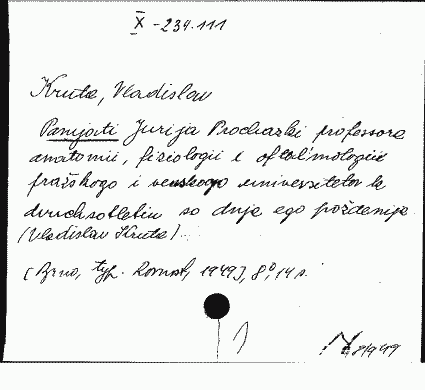 X - 234.111
Kruta, Vladislav
Pamjati Jurija Prochazki professora
anatomii, fiziologii i oftal'mologii
pražskogo i venskogo universitetov k
dvuchsotletiju so dnja ego roždenija
(Vladislav Kruta)
[Brno, typ. 1949], 8°, 14 s.